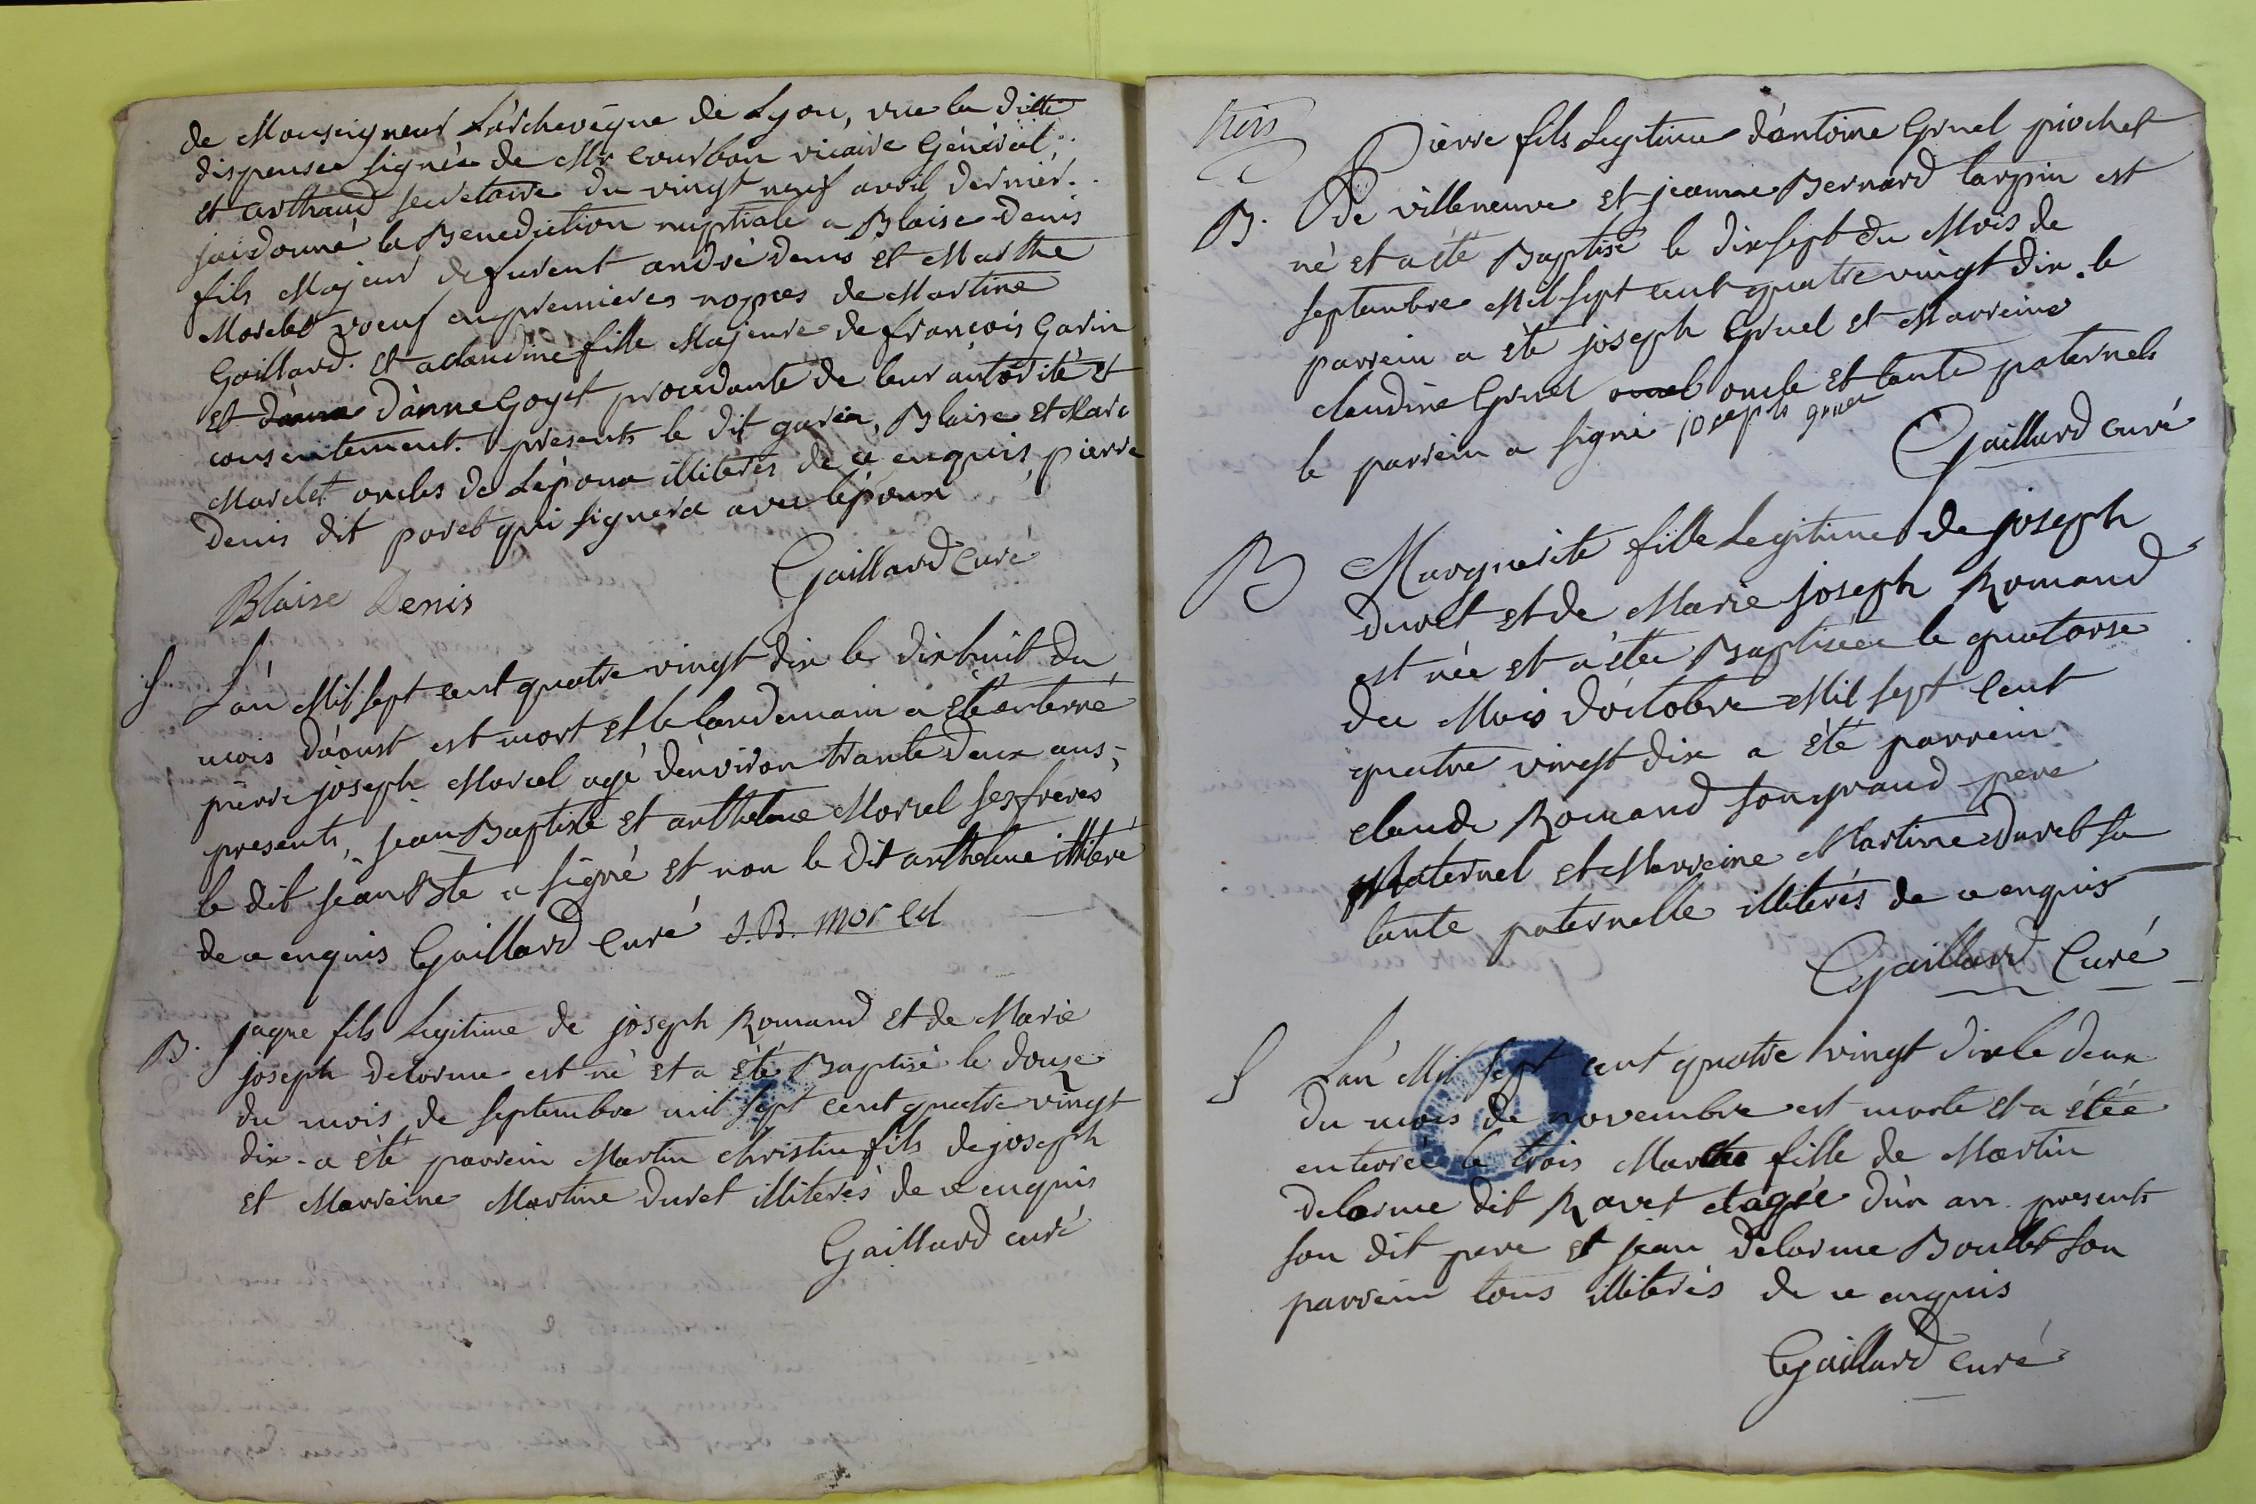 de Monseigneur L'archevêque de Lyon, vue la ditte
dispense signée de Mr Courbon vicaire Général
et arthaud secretaire du vingt neuf avril dernier.
jai donné la Benediction nuptiale a Blaise Denis
fils Majeur defurent andré denis et Marthe
Morelet voeuf en premieres nopces de Martine
Gaillard. et a claudine fille Majeure de françois Garin
et d'anne Goyet procedante de leur autorité et
consentement. presents le dit garin, Blaise et Marc
Morelet oncles de L'époux illiterés de ce enquis, pierre
Denis dit poret qui signera avec l'époux
Gaillard Curé
Blaise Denis
S L'an Mil sept cent quatre vingt dix le dix huit du
mois d'aoust est mort et le landemain a été enterré
pierre joseph Morcel agé d'environ trante deux ans,
presents, jean Baptiste et anthelme Morcel ses freres
le dit jean Bte a signé et non le dit anthelme illiteré
de ce enquis Gaillard Curé J.B. morcel
B. jaque fils Legitime de joseph Romand et de Marie
joseph delorme est né et a été Baptisé le douze
du mois de septembre mil sept cent quatre vingt
dix. a été parrein Martin christin fils de joseph
et Marreine Martine duret illiterés de ce enquis
Gaillard curé
Pierre fils Legitime d'antoine Gruel piochet
B. De villeneuve et jeanne Bernard tarpin est
né et a été Baptisé le dix sept du Mois de
septembre Mil sept cent quatre vingt dix. le
parrein a été joseph Gruel et Marreine
claudine Gruel oncle et tante paternels
le parrein a signé joseph gruel
Gaillard curé
B Marguerite fille Legitime de joseph
duret et de Marie joseph Romand
est née et a étée Baptisée le quatorse
du Mois d'octobre Mil sept Cent
quatre vingt dix a été parrein
claude Romand son grand pere
Maternel et Marreine Martine duret sa
tante paternelle illiterés de ce enquis
Gaillard Curé
S L'an Mil sept cent quatre vingt dix le deux
du mois de novembre est morte et a étée
enterrée le trois Marthe fille de Martin
delorme dit Ravet et agée d'un an. presents
son dit pere et jean delorme Boullet son
parrein tous illiterés de ce enquis
Gaillard curé